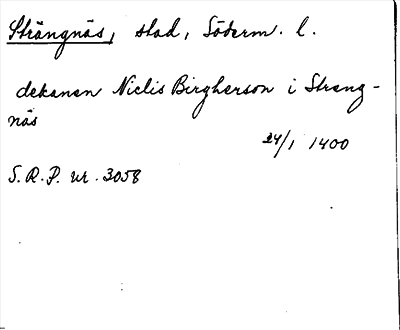 Strängnäs, stad, Söderm. l.
dekanen Niclis Birgherson i Streng-
näs
24/1 1400
S.R.P. nr. 3058